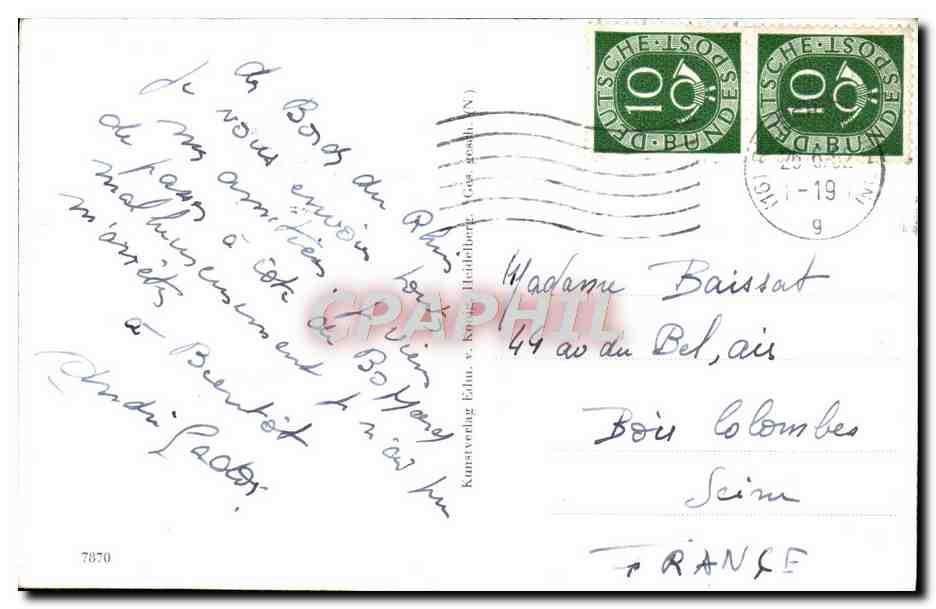 des Bords du Rhin
Je vous envoie toutes
mes amitiés. Je viens
de passer à côté du Bd
malheureusement je n'ai pu
m'arrêter
à Bientôt
André
7870
Kunstverlag Edm. v. König, Heidelberg. Ges. gesch. (N)
DEUTSCHE · BUNDESPOST · 10
DEUTSCHE · BUNDESPOST · 10
-19
g
CPAPHIL
Madame Baissat
44 av du Bel, air
Bois Colombes
Seine
FRANCE